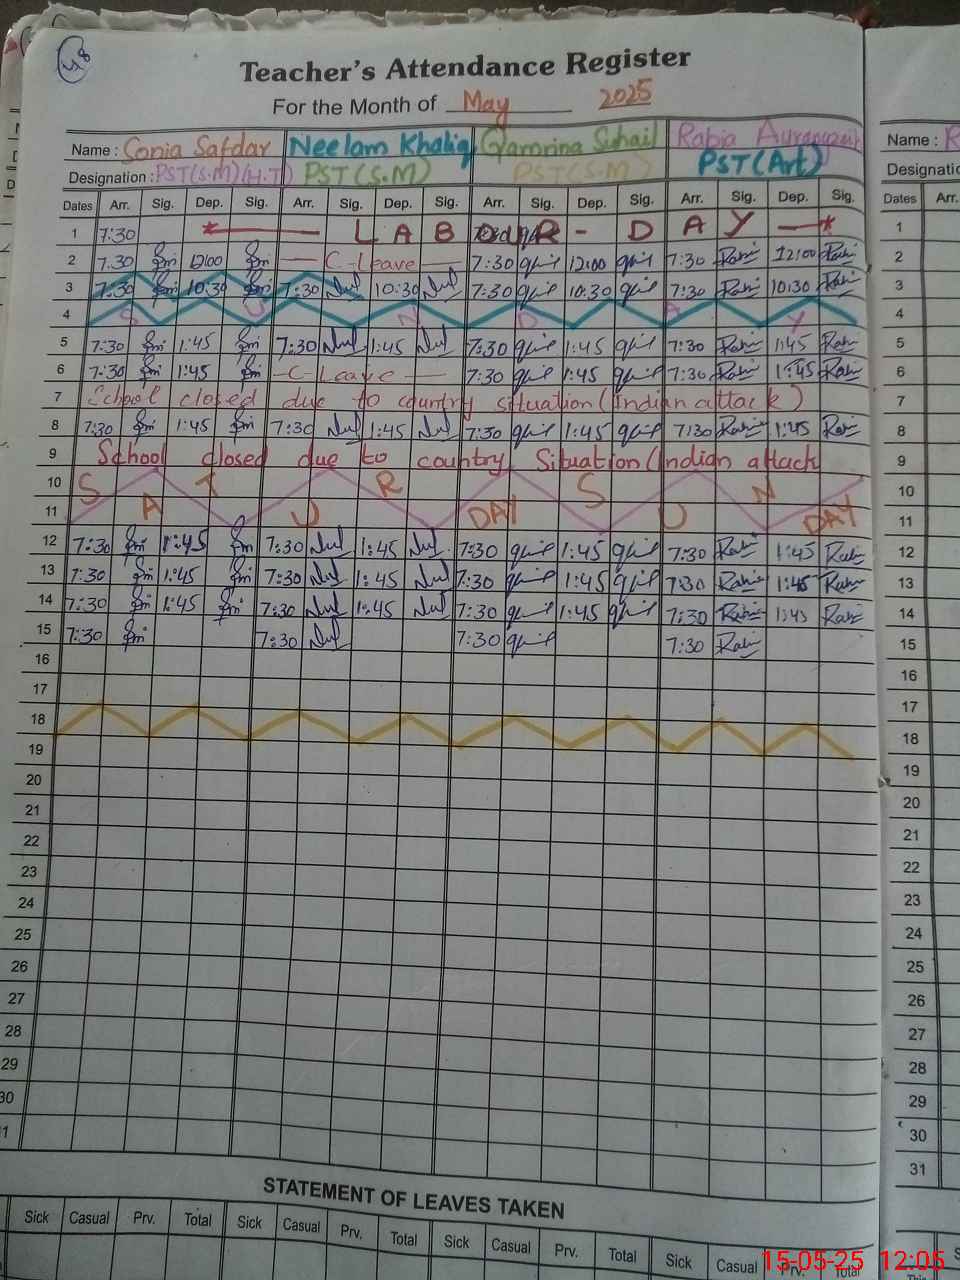 48
Teacher's Attendance Register
For the Month of May 2025
Name : Sonia Safdar Neelam Khaliq Qamrina Suhail Rabia Aurangzaib Name : R
Designation : PST(S.M)(H.T) PST(S.M) PST(S.M) PST(Art) Designatio
Dates Arr. Sig. Dep. Sig. Arr. Sig. Dep. Sig. Arr. Sig. Dep. Sig. Arr. Sig. Dep. Sig. Dates Arr.
1 7:30 LABOUR - DAY 1
2 7:30 12:00 C-Leave 7:30 12:00 7:30 12:00 2
3 7:30 10:30 7:30 10:30 7:30 10:30 7:30 10:30 3
4 SUNDAY 4
5 7:30 1:45 7:30 1:45 7:30 1:45 7:30 1:45 5
6 7:30 1:45 C-Leave 7:30 1:45 7:30 1:45 6
7 School closed due to country situation (Indian attack) 7
8 7:30 1:45 7:30 1:45 7:30 1:45 7:30 1:45 8
9 School closed due to country Situation (Indian attack 9
10 SATURDAY SUNDAY 10
11 11
12 7:30 1:45 7:30 1:45 7:30 1:45 7:30 1:45 12
13 7:30 1:45 7:30 1:45 7:30 1:45 7:30 1:45 13
14 7:30 1:45 7:30 1:45 7:30 1:45 7:30 1:45 14
15 7:30 7:30 7:30 7:30 15
16 16
17 17
18 18
19 19
20 20
21 21
22 22
23 23
24 24
25 25
26 26
27 27
28 28
29 29
30 30
1 31
STATEMENT OF LEAVES TAKEN
Sick Casual Prv. Total Sick Casual Prv. Total Sick Casual Prv. Total Sick Casual Prv. Total S
15-05-25 12:05